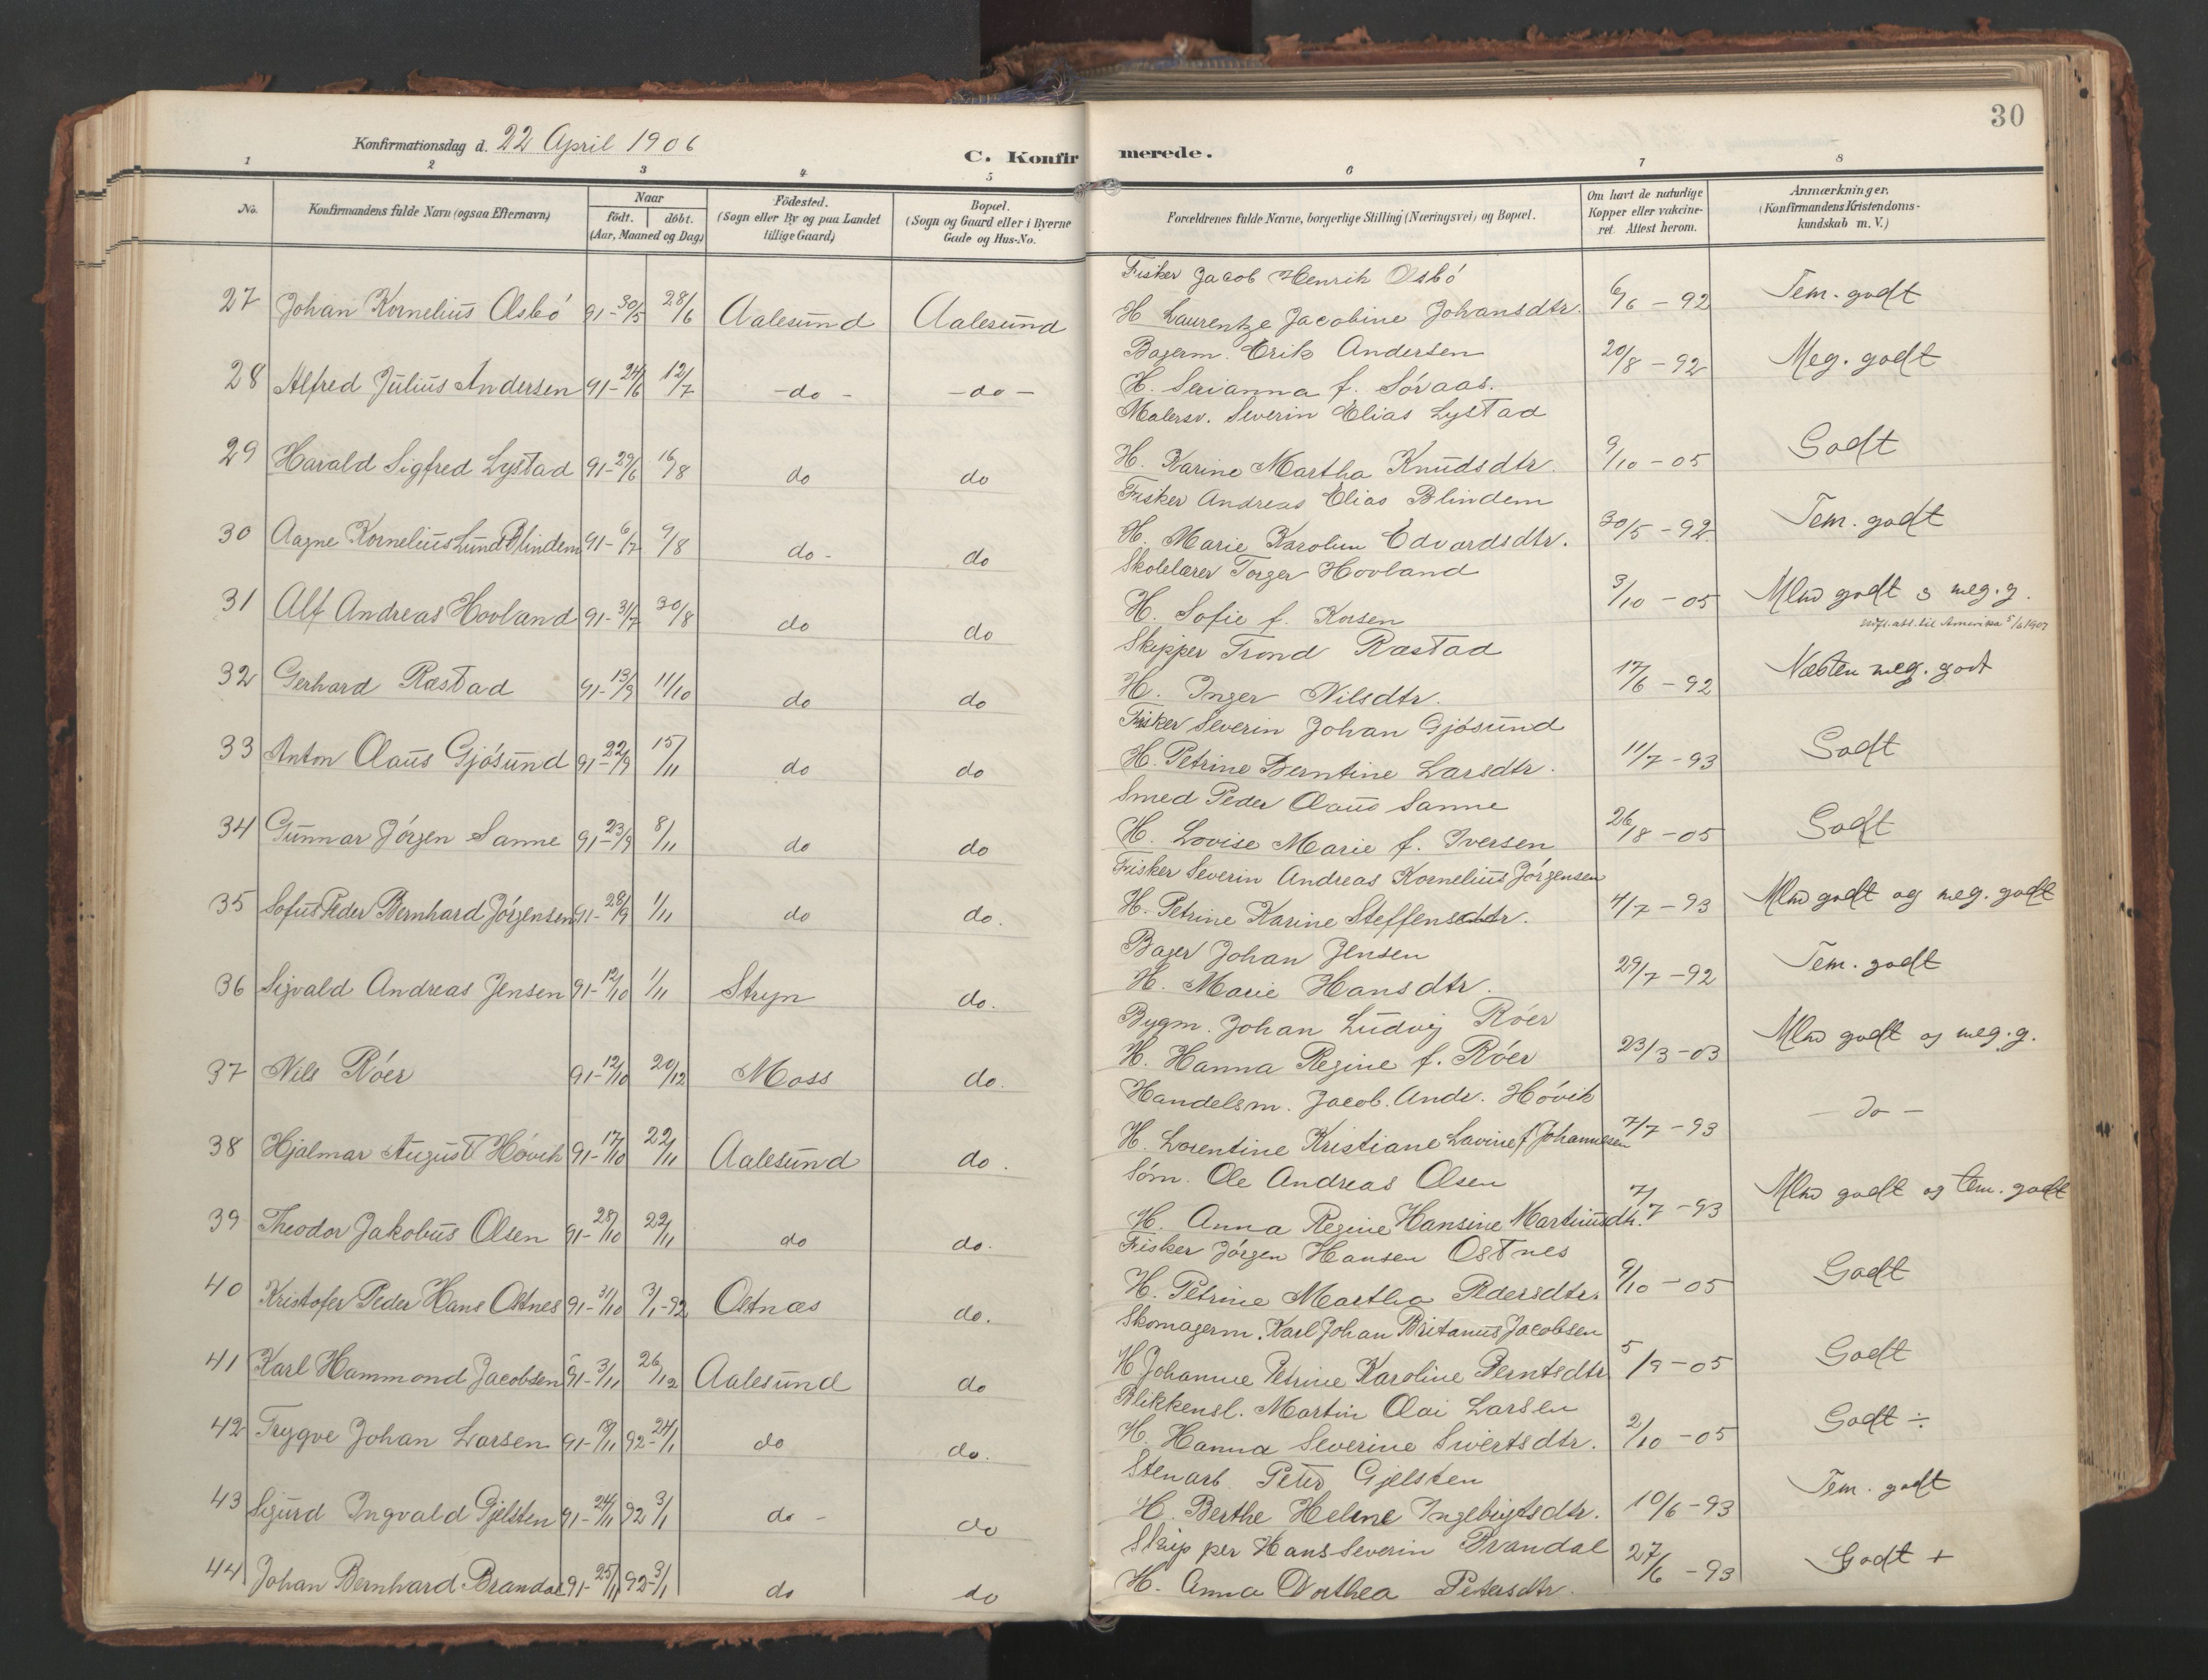 30
Konfirmationsdag d. 22 April 1906
C. Konfirmerede.
1 2 3 4 5 6 7 8
No.
Konfirmandens fulde Navn (ogsaa Efternavn)
Naar
födt. döbt.
(Aar, Maaned og Dag)
Födested.
(Sogn eller By og paa Landet
tillige Gaard)
Bopæl.
(Sogn og Gaard eller i Byerne
Gade og Hus-No.
Forældrenes fulde Navne, borgerlige Stilling (Næringsvei) og Bopæl.
Om havt de naturlige
Kopper eller vakcine-
ret. Attest herom.
Anmærkninger.
(Konfirmandens Kristendoms-
kundskab m. V.)
Fisker Jacob Henrik Osbó
27 Johan Kornelius Osbó 91-30/5 28/6 Aalesund Aalesund H Laurentze Jacobine Johansdtr. 6/6 - 92 Tem. godt
Bagerm. Erik Andersen
28 Alfred Julius Andersen 91-24/6 12/7 -do- -do- H. Serianna f. Sóraas. 20/8 - 92 Meg. godt
Malersv. Severin Elias Lystad
29 Harald Sigfred Lystad 91-29/6 16/8 do do H. Karine Martha Knudsdtr. 9/10 - 05 Godt
Fisker Andreas Elias Blindem
30 Aagne Kornelius Lund Blindem 91-6/7 9/8 do- do H. Marie Karolin Edvardsdtr. 30/5 - 92 Tem. godt
Skolelærer Torger Hovland
31 Alf Andreas Hovland 91-31/7 30/8 do do H. Sofie f. Korsen 3/10 - 05 Mlm godt o meg. g.
til Amerika 5/6 1907
Skipper Trond Ræstad
32 Gerhard Ræstad 91-13/9 11/10 do do H. Inger Nilsdtr. 17/6 - 92 Næsten meg. godt
Fisker Severin Johan Gjósund
33 Anton Olaus Gjósund 91-22/9 15/11 do do H. Petrine Berntine Larsdtr. 11/7 - 93 Godt
Smed Peder Olaus Sanne
34 Gunnar Jórgen Sanne 91-23/9 8/11 do do H. Lovise Marie f. Iversen 26/8 - 05 Godt
Fisker Severin Andreas Kornelius Jórgensen
35 Sofus Peder Bernhard Jórgensen 91-28/9 1/11 do do. H. Petrine Karine Steffensdtr. 4/7 - 93 Mlm godt og meg. godt
Bager Johan Jensen
36 Sigvald Andreas Jensen 91-12/10 1/11 Stryn do. H. Marie Hansdtr. 29/7 - 92 Tem. godt
Bygm. Johan Ludvig Róer
37 Nils Róer 91-12/10 20/12 Moss do. H. Hanna Regine f. Róer 23/3 - 03 Mlm godt og meg. g.
Handelsm. Jacob. Andr. Hóvik
38 Hjalmar August Hóvik 91-17/10 22/11 Aalesund do. H. Lorentine Kristiane Lavine f. Johannesen 7/7 - 93 - do -
Sóm. Ole Andreas Olsen
39 Theodor Jakobus Olsen 91-28/10 22/11 do do. H. Anna Regine Hansine Martinusdtr. 7/7 - 93 Mlm godt og tem. godt
Fisker Jórgen Hansen Ostnes
40 Kristofer Peder Hans Ostnes 91-31/10 3/1-92 Ostnæs do. H. Petrine Martha Pedersdtr. 9/10 - 05 Godt
Skomagerm. Karl Johan Britanus Jacobsen
41 Karl Hammond Jacobsen 91-3/11 26/12 Aalesund do H Johanne Petrine Karoline Berntsdtr 5/9 - 05 Godt
Blikkensl. Martin Olai Larsen
42 Trygve Johan Larsen 91-19/11 92-24/1 do do. H. Hanna Severine Sivertsdtr. 2/10 - 05 Godt ÷
Stenarb. Peter Gjelsten
43 Sigurd Ingvald Gjelsten 91-24/11 92 3/1 do - do H. Berthe Heline Ingebrigtsdtr. 10/6 - 93 Tem. godt
Skipper Hans Severin Brandal
44 Johan Bernhard Brandal 91-25/11 92-3/1 do do H. Anna Dorthea Petersdtr. 27/6 - 93 Godt +